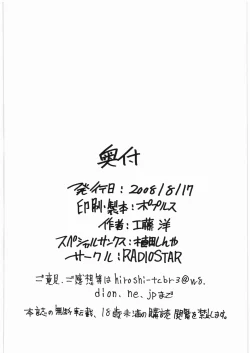 奥付
発行日：2008/8/17
印刷・製本：ポプルス
作者：工藤 洋
スペシャルサンクス：植田しんや
サークル：RADIOSTAR
ご意見、ご感想等は hiroshi-tcbr-3@w8.
dion.ne.jpまで
本誌の無断転載、18歳未満の購読 閲覧を禁じます。